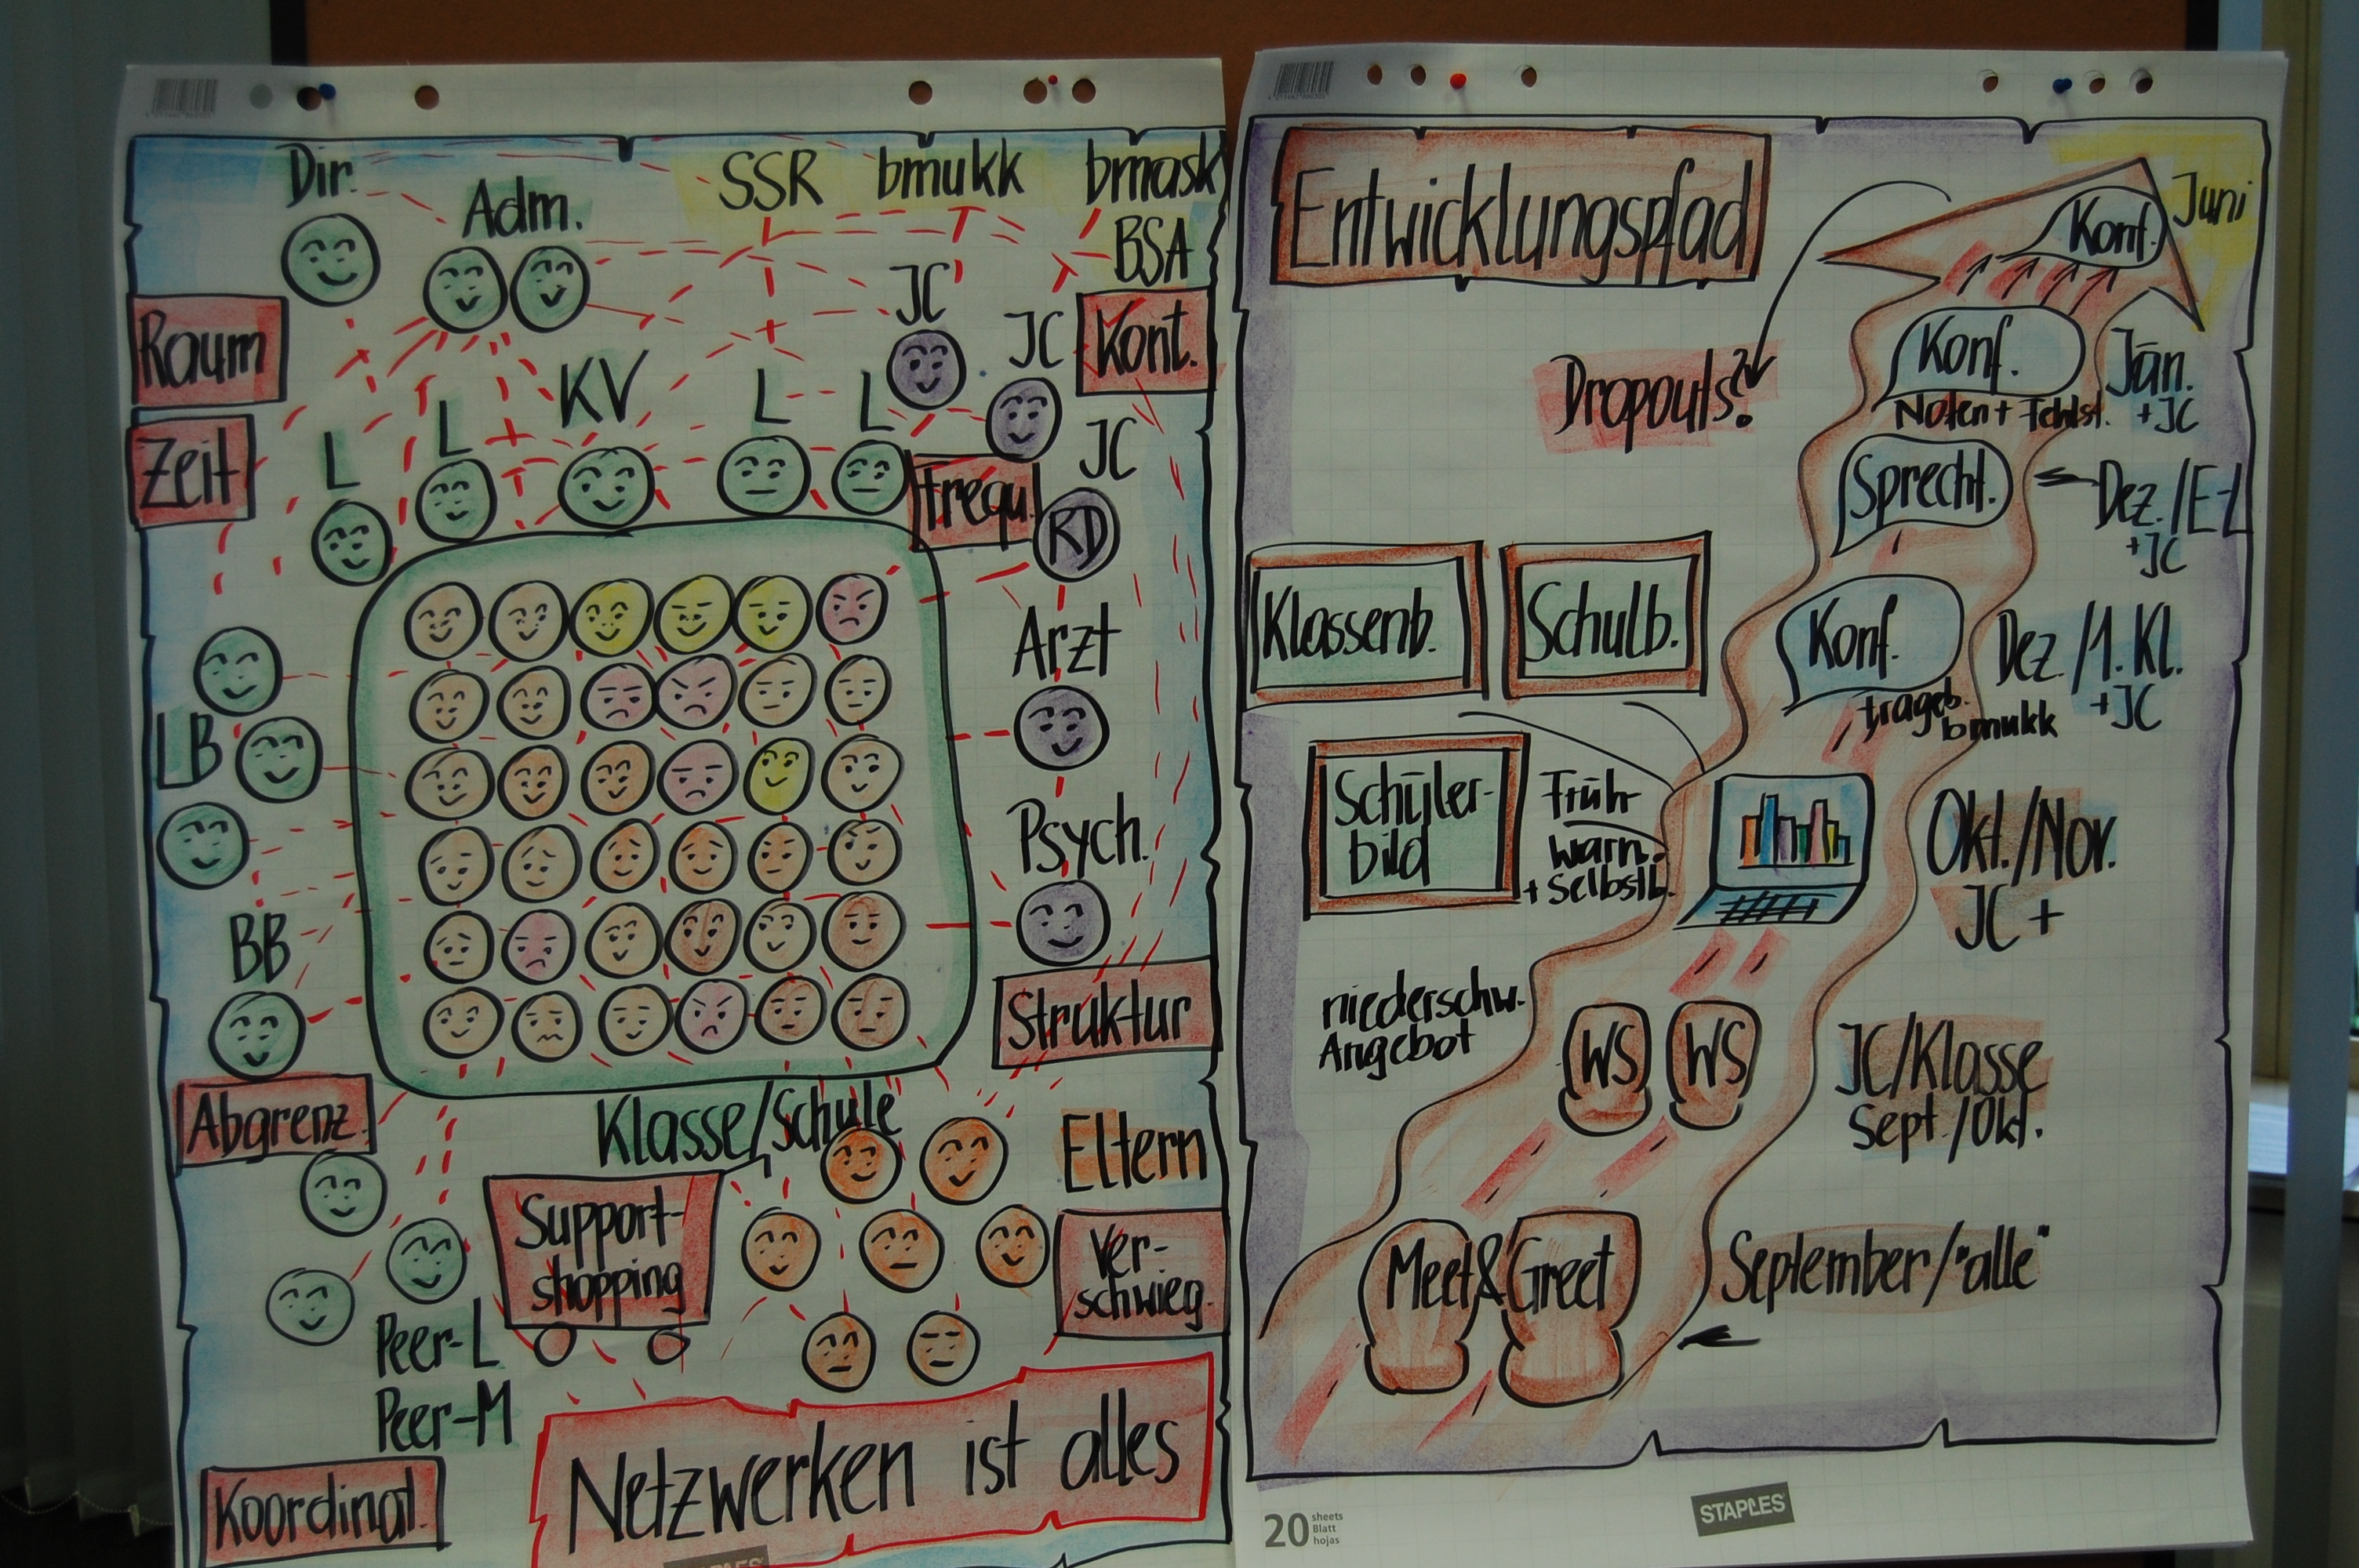 Dir.
Adm.
SSR
bmukk
bmask
BSA
JC
JC
Kont.
Raum
KV
L
L
L
L
Zeit
Frequ.
JC
RD
Arzt
LB
Psych.
BB
Struktur
Abgrenz.
Klasse/Schule
Eltern
Support-
shopping
Ver-
schwieg.
Peer-L
Peer-M
Koordinat.
Netzwerken ist alles
Entwicklungspfad
Konf.
Juni
Dropouts?
Konf.
Jän.
Noten + Fehlst.
+ JC
Sprecht.
Dez./E-L
+ JC
Klassenb.
Schulb.
Konf.
Dez./1. Kl.
+ JC
frageb.
bmukk
Schüler-
bild
Früh-
warn.
+ Selbstb.
Okt./Nov.
JC +
niederschw.
Angebot
WS
WS
JC/Klasse
Sept./Okt.
Meet & Greet
September/"alle"
20 sheets
Blatt
hojas
STAPLES